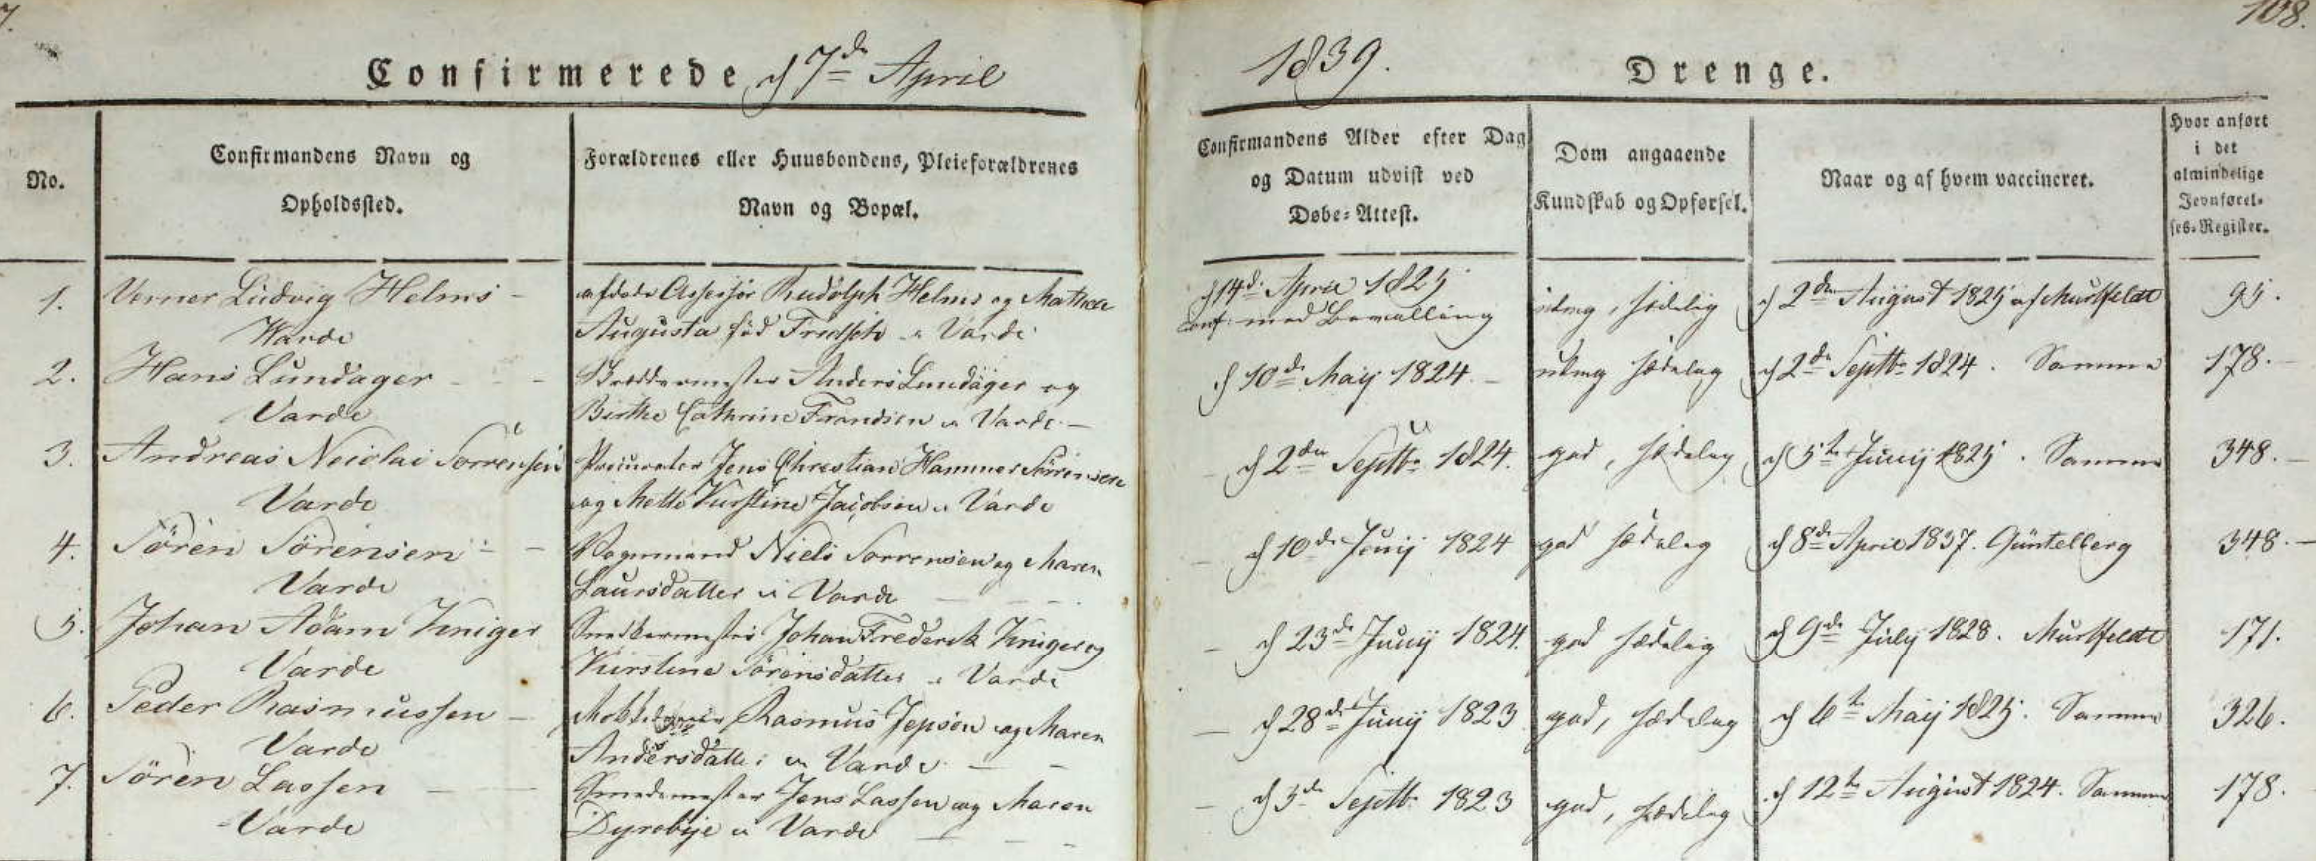 7.
108.
Confirmerede d 7de April
1839.
Drenge.
No.
Confirmandens Navn og
Opholdssted.
Forældrenes eller Huusbondens, Pleieforældrenes
Navn og Bopæl.
Confirmandens Alder efter Dag
og Datum udvist ved
Døbe-Attest.
Dom angaaende
Kundskab og Opførsel.
Naar og af hvem vaccineret.
Hvor anført
i det
almindelige
Jevnførel-
ses-Register.
1. Verner Ludvig Helms - afdøde Assessor Rudolph Helms og Mathea d 14de April 1825 , sædelig d 2den August 1825 af Murtfeldt 95.
Varde Augusta fød i Varde conf. med Bevilling
2. Hans Lundager - - - Anders Lundager og d 10de Maij 1824. - sædelig d 2de Septbr 1824. Samme 178. -
Varde Birthe Cathrine Frandsen i Varde. -
3. Andreas Neiolai Sørrensen Procurator Jens Christian Hammer Sørensen - d 2den Septbr 1824. god, sædelig d 5te Junij 1825. Samme 348. -
Varde og Mette Kirstine Jacobsen i Varde
4. Søren Sörensen - - Vognmand Niels Sørrensen og Maren - d 10de Junij 1824 god sædelig d 8de April 1837. Güntelberg 348. -
Varde Laursdatter i Varde - - -.
5. Johan Adam Kniger Snedkermester Johan Frederik Kniger og - d 23de Junij 1824. god sædelig d 9de July 1828. Murtfeldt 171.
Varde Kirstine Sørensdatter i Varde
6. Peder Rasmussen - Rasmus Jepsen og Maren - d 28de Junij 1823 god, sædelig d 6te Maij 1825. Samme 326.
Varde Andersdatter i Varde - -
7. Søren Lassen - - Smedemester Jens Lassen og Maren - d 3de Septbr 1823 god, sædelig d 12te August 1824. Samme 178.
Varde Dyrebye i Varde - - -